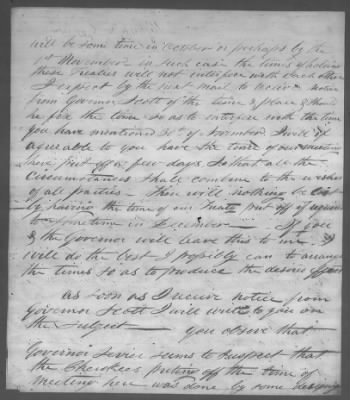 will be some time in October or perhaps by the
1st November in such case the times of holding
these Treaties will not interfere with each other
I expect by the next mail to receive notice
from Governor Scott of the time & place & should
he fix the time so as to interfere with the time
you have mentioned 30th of November I will if
agreeable to you have the time of our meeting
here put off a few days so that all the
Circumstances shall combine to the wishes
of all parties - there will nothing be lost
by having the time of our Treaty put off again
to sometime in December - If you
& the Governor will leave this to me I
will do the best I possibly can to arrange
the times so as to produce the desired
as soon as I receive notice from
Governor Scott I will write to you on
the Subject - you observe that
Governor Sevier seems to suspect that
the Cherokees putting off the time of
meeting here was done by some designing